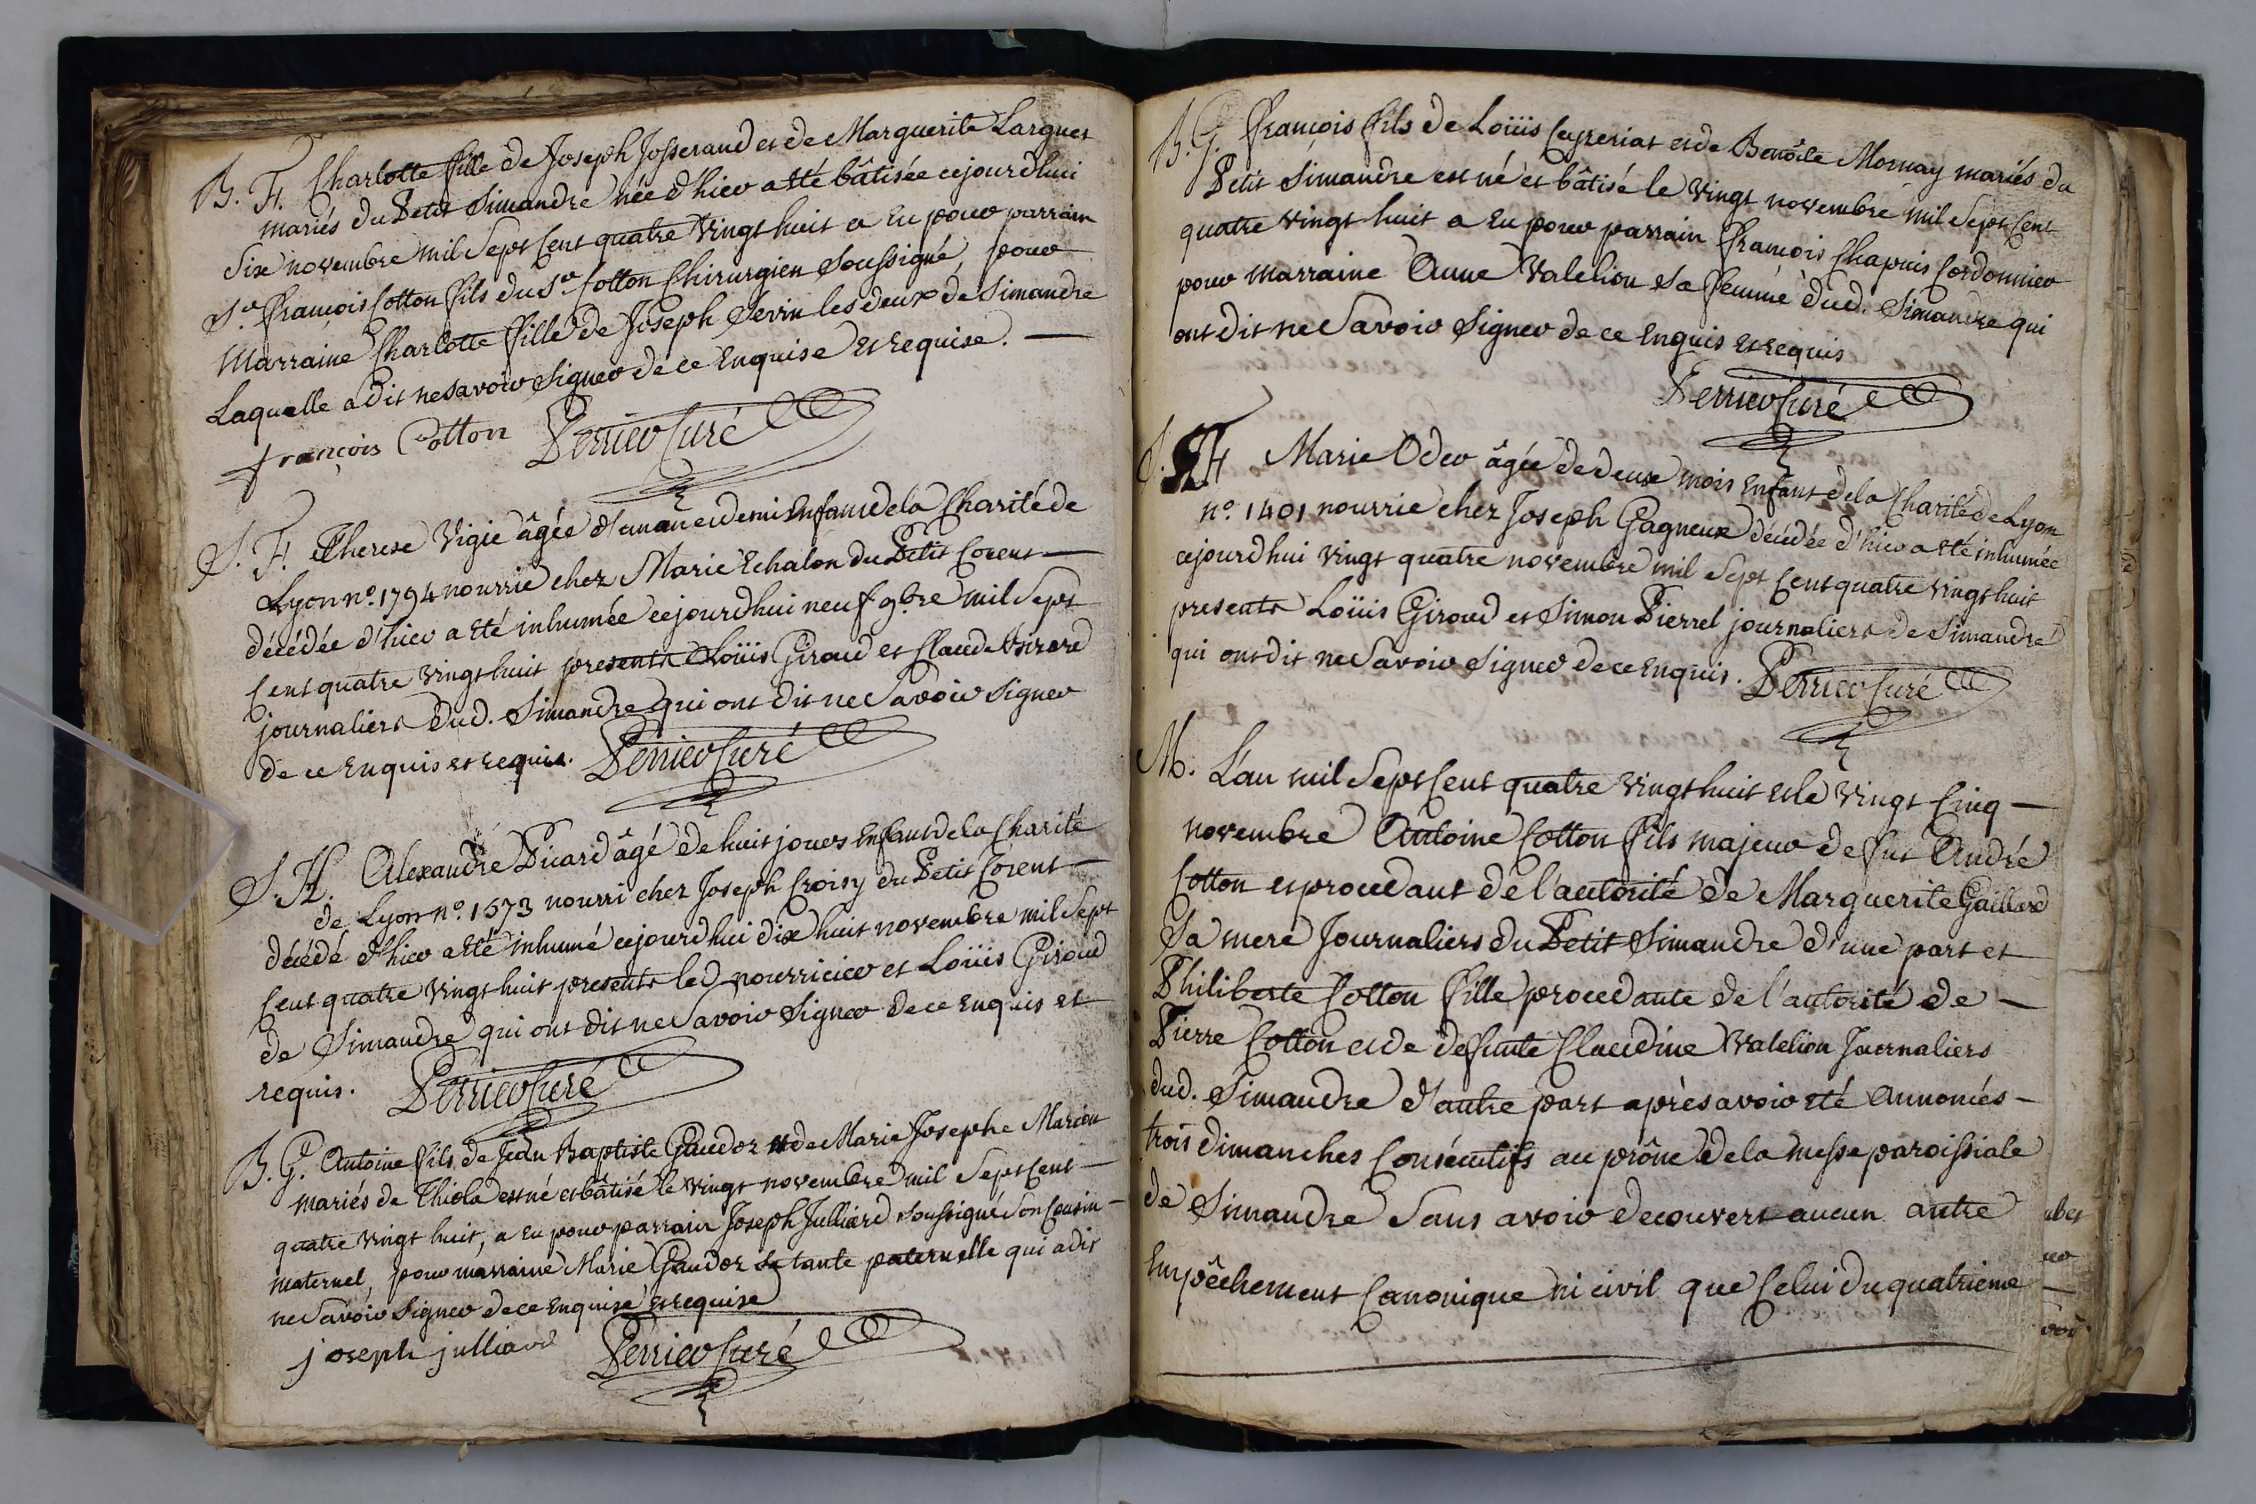 B. F. Charlotte fille de Joseph Josserand et de Marguerite Larguet
mariés du Petit Simandre née d'hier a été bâtisée cejourdhui
Six novembre mil Sept Cent quatre Vingt huit a Eu pour parrain
Sr. François Cotton fils du Sr. Cotton Chirurgien Soussigné, pour
Marraine Charlotte fille de Joseph Sevin les deux de Simandre
Laquelle a dit ne Savoir Signer de ce Enquise et requise. —
françois Cotton Perrier Curé
S. F. Therese Vigie âgée d'un an et demi Enfant de la Charité de
Lyon no. 1794 nourrie chez Marie Echalon du Petit Corent —
décédée d'hier a été inhumée cejourdhui neuf 9bre mil Sept
Cent quatre vingt huit presents Loüis Giroud et Claude
journaliers dud. Simandre qui ont dit ne Savoir Signer
de ce Enquis et requis. Perrier Curé
S. H. Alexandre Picard âgé de huit jours Enfant de la Charité
de Lyon no. 1573 nourri chez Joseph Croisy du Petit Corent —
décédé d'hier a été inhumé cejourdhui dix huit novembre mil Sept
Cent quatre Vingt huit presents led. nourricier et Loüis Giroud
de Simandre qui ont dit ne Savoir Signer de ce Enquis et
requis. Perrier Curé
B. G. Antoine fils de Jean Baptiste Gaudoz et de Marie Josephe Marion
mariés de Thiola est né et bâtisé le vingt novembre mil Sept Cent —
quatre vingt huit, a Eu pour parrain Joseph Julliard Soussigné Son Cousin —
maternel, pour marraine Marie Gaudoz Sa tante paternelle qui a dit
ne Savoir Signer de ce Enquise et requise
joseph julliard Perrier Curé
B. G. François fils de Loüis Ceyzeriat et de Benoîte Mornay mariés du
Petit Simandre est né et bâtisé le Vingt novembre mil Sept Cent
quatre vingt huit a Eu pour parrain François Chapuis Cordonnier
pour marraine Anne Valelion Sa femme dud. Simandre qui
ont dit ne Savoir Signer de ce Enquis et requis
Perrier Curé
S. F. Marie Oder âgée de deux mois Enfant de la Charité de Lyon
no. 1401 nourrie chez Joseph Gagneux décédée d'hier a été inhumée
cejourdhui vingt quatre novembre mil Sept Cent quatre vingt huit
presents Loüis Giroud et Simon Pierrel journaliers de Simandre
qui ont dit ne Savoir Signer de ce Enquis. Perrier Curé
M. L'an mil Sept Cent quatre vingt huit et le vingt Cinq —
novembre Antoine Cotton fils majeur de fut André
Cotton et procedant de l'autorité de Marguerite Gaillard
Sa mere Journaliers du Petit Simandre d'une part et
Philiberte Cotton fille procedante de l'autorité de —
Pierre Cotton et de deffunte Claudine Valelion Journaliers
dud. Simandre d'autre part après avoir été annoncés —
trois dimanches Consécutifs au prône de la messe paroissiale
de Simandre Sans avoir decouvert aucun autre
Empêchement Canonique ni civil que Celui du quatrieme